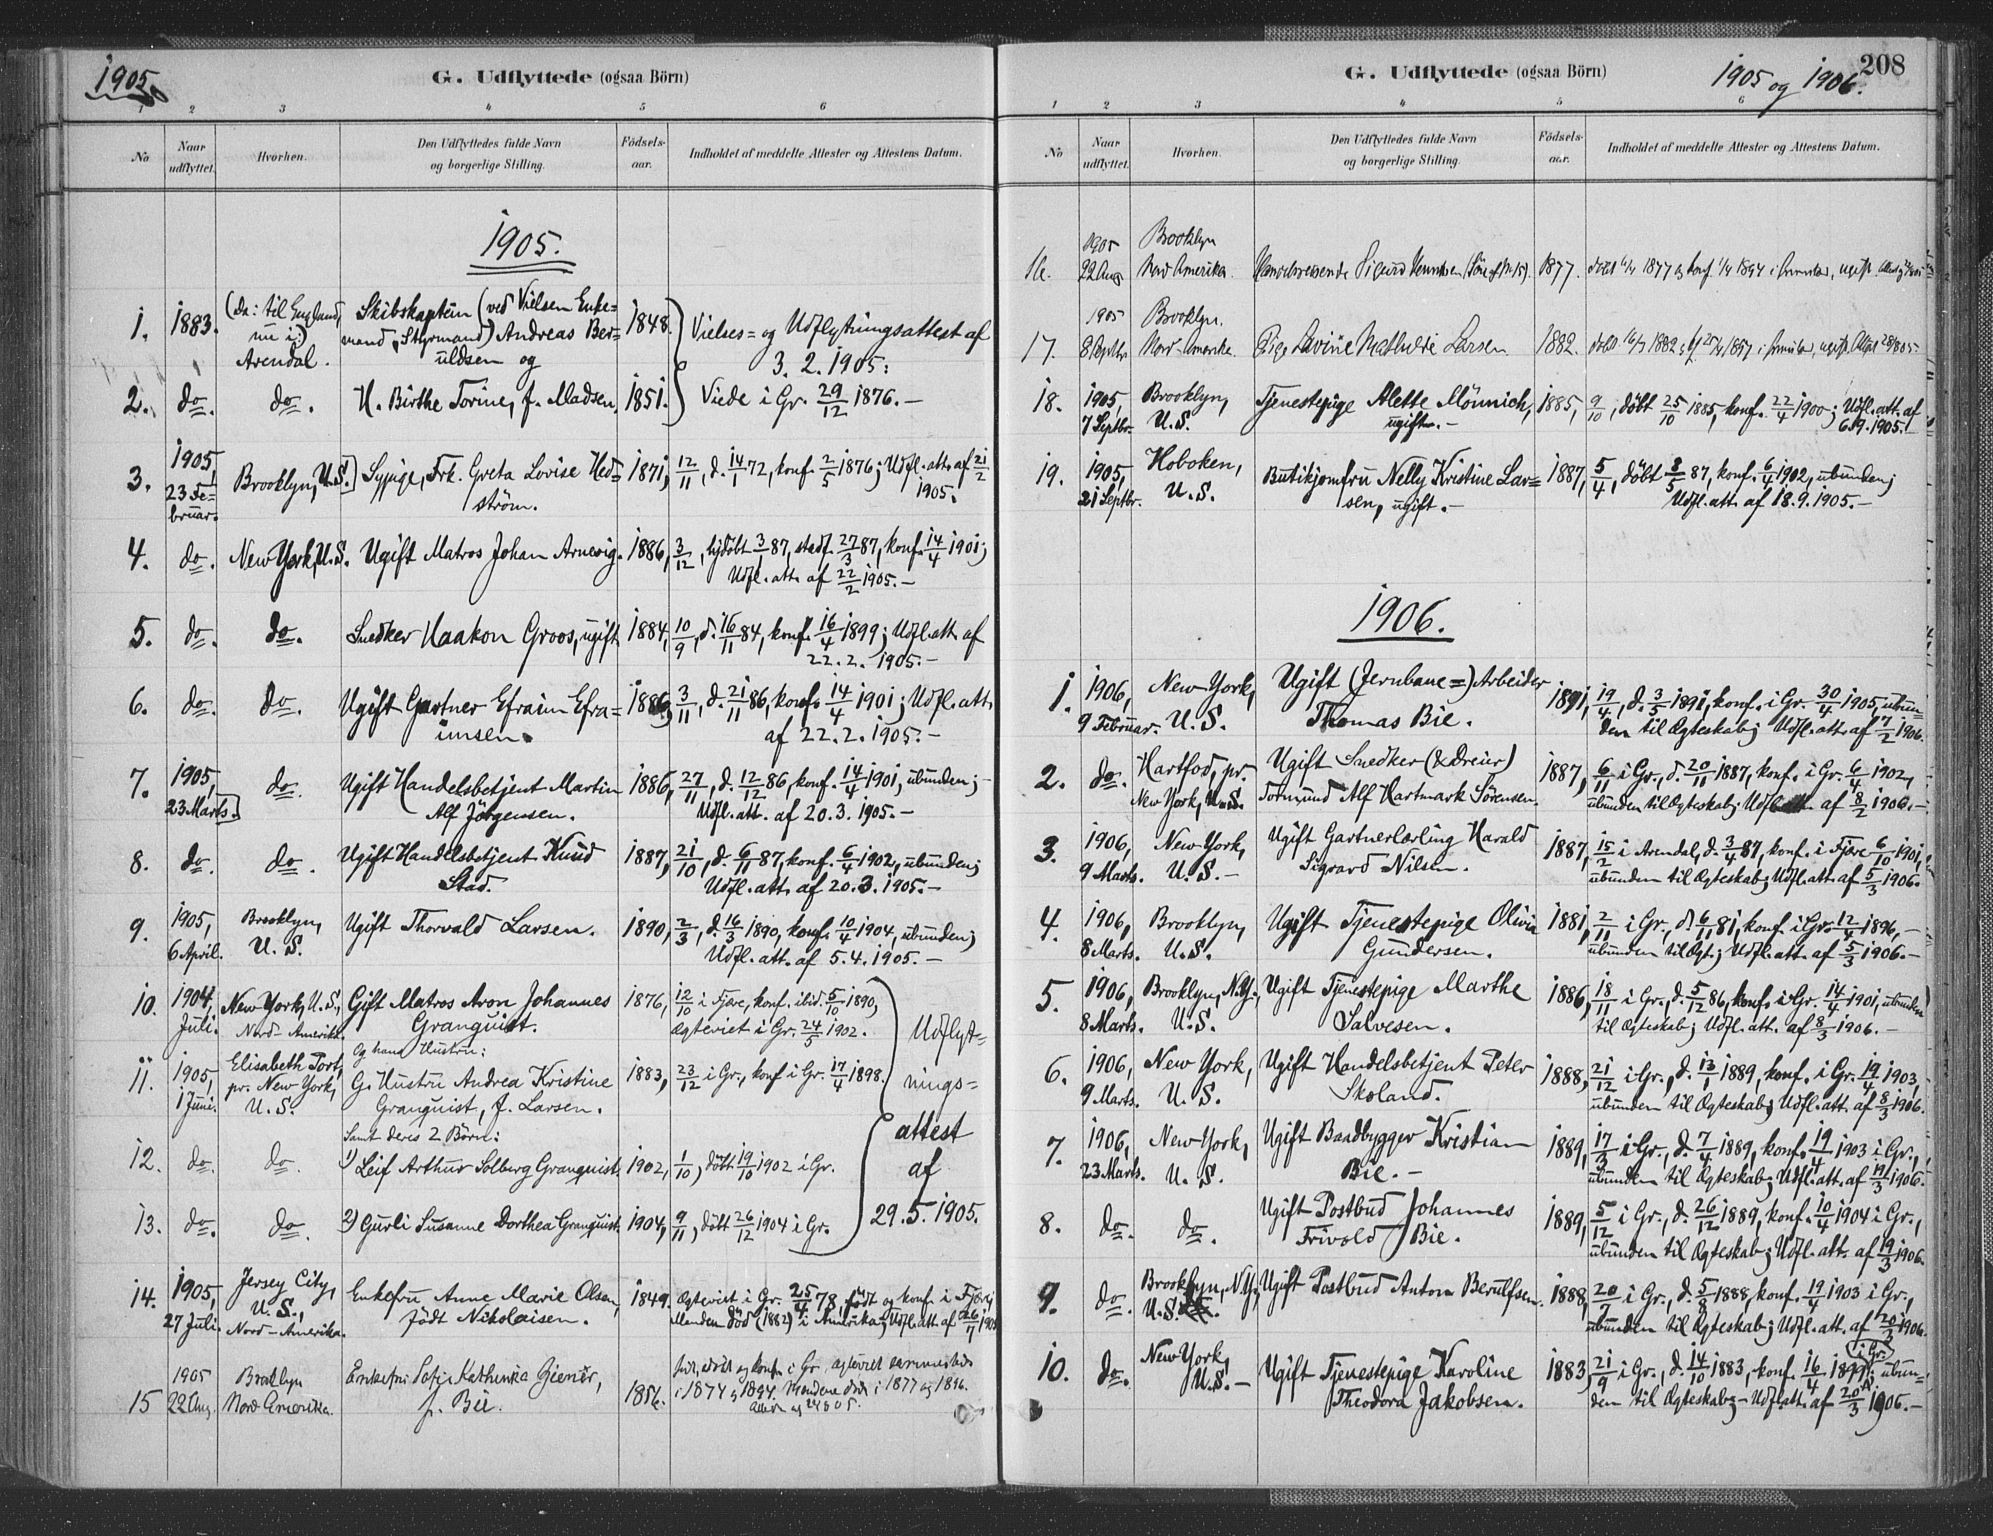 1905.
G. Udflyttede (ogsaa Börn)
1 2 3 4 5 6
No
Naar udflyttet.
Hvorhen.
Den Udflyttedes fulde Navn og borgerlige Stilling.
Födsels-aar.
Indholdet af meddelte Attester og Attestens Datum.
1905.
1. 1883. (da: til England, nu i:) Arendal. Skibskaptein (ved Vielsen Enke=
mand, Styrmand) Andreas Ber=
uldsen og 1848. Vielses= og Udflytningsattest af
3. 2. 1905:
2. do. do. H. Birthe Torine, f. Madsen, 1851. Viede i Gr. 29/12 1876.—
3. 1905, 23 Fe=
bruar. Brooklyn, U.S. Sypige, Frk. Greta Lovise Hed=
ström. 1871, 12/11, d. 14/1 72, konf. 2/5 1876; Udfl. att. af 21/2
1905.
4. do. New York, U.S. Ugift Matros Johan Arnevig. 1886, 3/12, hjdöbt 3/1 87, stadf. 27/3 87, konf. 14/4 1901;
Udfl. att. af 22/2 1905.—
5. do. do. Snedker Haakon Groos, ugift 1884, 10/9, d. 16/11 84, konf. 16/4 1899; Udfl. att. af
22. 2. 1905.—
6. do. do. Ugift Gartner Efraim Efra=
imsen. 1886, 3/11, d. 21/11 86, konf. 14/4 1901; Udfl. att.
af 22. 2. 1905.—
7. 1905, 23 Marts. do. Ugift Handelsbetjent Martin
Alf Jörgensen. 1886, 27/11, d. 12/12 86, konf. 14/4 1901, ubunden;
Udfl. att. af 20. 3. 1905.—
8. do. do. Ugift Handelsbetjent Knud
Stad. 1887, 21/10, d. 6/11 87, konf. 6/4 1902, ubunden;
Udfl. att. af 20. 3. 1905.—
9. 1905, 6 April. Brooklyn, U.S. Ugift Thorvald Larsen. 1890, 2/3, d. 16/3 1890, konf. 10/4 1904, ubunden;
Udfl. att. af 5. 4. 1905.—
10. 1904, Juli. New York, U.S.,
Nord-Amerika. Gift Matros Aron Johannes
Granquist. 1876, 12/10 i Fjære, konf. ibid. 5/10 1890,
ægteviet i Gr. 24/5 1902.
Og hans Hustru:
11. 1905, 1 Juni. Elisabeth Port,
pr. New York,
U.S. G. Hustru Andrea Kristine
Granquist, f. Larsen. 1883, 23/12 i Gr., konf i Gr. 17/4 1898.
Samt deres 2 Börn:
12. do. do. 1) Leif Arthur Solberg Granquist. 1902, 1/10, döbt 19/10 1902 i Gr.
13. do. do. 2) Gurli Susanne Dorthea Granquist. 1904, 9/11, döbt 26/12 1904 i Gr.
Udflyt=
nings=
attest
af
29. 5. 1905.
14. 1905, 27 Juli. Jersey City,
U.S.,
Nord-Amerika. Enkefru Anne Marie Olsen,
födt Nikolaisen. 1849. ægteviet i Gr. 25/4 78, födt og konf. i Fjære
Manden död (1882) i Amerika; Udfl. att. af 26/7 1905
15 1905 22 Aug. Brooklyn
Nord Amerika. Enkefru Kathinka
f. Bie. 1856. i 1874 1894. Mændene döde i 1877 og 1896.
208
G. Udflyttede (ogsaa Börn)
1905 og 1906.
1 2 3 4 5 6
No
Naar udflyttet.
Hvorhen.
Den Udflyttedes fulde Navn og borgerlige Stilling.
Födsels-aar.
Indholdet af meddelte Attester og Attestens Datum.
16. 1905 22 Aug Brooklyn
Nord Amerika. Handelsreisende Sigurd 1877.
17. 1905 8 Septbr. Brooklyn.
Nord-Amerika. Pige Lavine Mathilde Larsen 1882.
18. 1905, 7 Septbr. Brooklyn,
U.S. Tjenestepige Alette Mönnich,
ugift.— 1885, 9/10, döbt 25/10 1885, konf. 22/4 1900; Udfl. att. af
6. 9. 1905.—
19. 1905, 21 Septbr. Hoboken,
U.S. Butikjomfru Nelly Kristine Lar=
sen, ugift.— 1887, 5/4, döbt 8/5 87, konf. 6/4 1902, ubunden;
Udfl. att. af 18. 9. 1905.—
1906.
1. 1906, 9 Februar. New York,
U.S. Ugift (Jernbane=) Arbeider
Thomas Bie. 1891, 19/4, d. 3/5 1891, konf. i Gr. 30/4 1905, ubun=
den til Ægteskab; Udfl. att. af 7/2 1906.
2. do. Hartfod, pr.
New York, U.S. Ugift Snedker (& Dreier)
Tormund Alf Hartmark Sörensen. 1887, 6/11 i Gr., d. 20/11 1887, konf. i Gr. 6/4 1902,
ubunden til Ægteskab; Udfl. att. af 8/2 1906.—
3. 1906, 9 Marts. New York,
U.S.— Ugift Gartnerlærling Harald
Sigvard Nilsen. 1887, 15/2 i Arendal, d. 3/4 87, konf. i Fjære 6/10 1901,
ubunden til Ægteskab; Udfl. att. af 5/3 1906.
4. 1906, 8 Marts. Brooklyn,
U.S. Ugift Tjenestepige Olivia
Gundersen. 1881, 2/11 i Gr., d. 6/11 81, konf. i Gr. 12/4 1896,—
ubunden til Ægt.; Udfl. att. af 5/3 1906.—
5. 1906, 8 Marts. Brooklyn, N.Y.,
U.S. Ugift Tjenestepige Marthe
Salvesen. 1886, 18/11 i Gr., d. 5/12 86, konf. i Gr. 14/4 1901, ubunden
til Ægteskab; Udfl. att. af 8/3 1906.—
6. 1906, 9 Marts. New York,
U.S. Ugift Handelsbetjent Peter
Skoland. 1888, 21/12 i Gr., d. 13/1 1889, konf. i Gr. 19/4 1903,
ubunden til Ægteskab; Udfl. att. af 8/3 1906.
7. 1906, 23 Marts. New York,
U.S. Ugift Baadbygger Kristian
Bie.— 1889, 17/3 i Gr., d. 7/4 1889, konf. 19/4 1903 i Gr.,
ubunden til Ægteskab; Udfl. att. af 19/3 1906.
8. do. do. Ugift Postbud Johannes
Frivold Bie. 1889, 5/12 i Gr., d. 26/12 1889, konf. 10/4 1904 i Gr.,
ubunden til Ægteskab; Udfl. att. af 19/3 1906.
9. do. Brooklyn, N.Y.,
U.S. Ugift Postbud Anton Berulfsen. 1888, 20/7 i Gr., d. 5/8 1888, konf. 19/4 1903 i Gr.,
ubunden til Ægteskab; Udfl. att. af 20/3 1906.
10. do. New York,
U.S.— Ugift Tjenestepige Karoline
Theodora Jakobsen. 1883, 21/9 i Gr., d. 14/10 1883, konf. 16/4 1899 i Gr.; ubun=
den til Ægteskab;— Udfl. att. af 20/3 1906.—